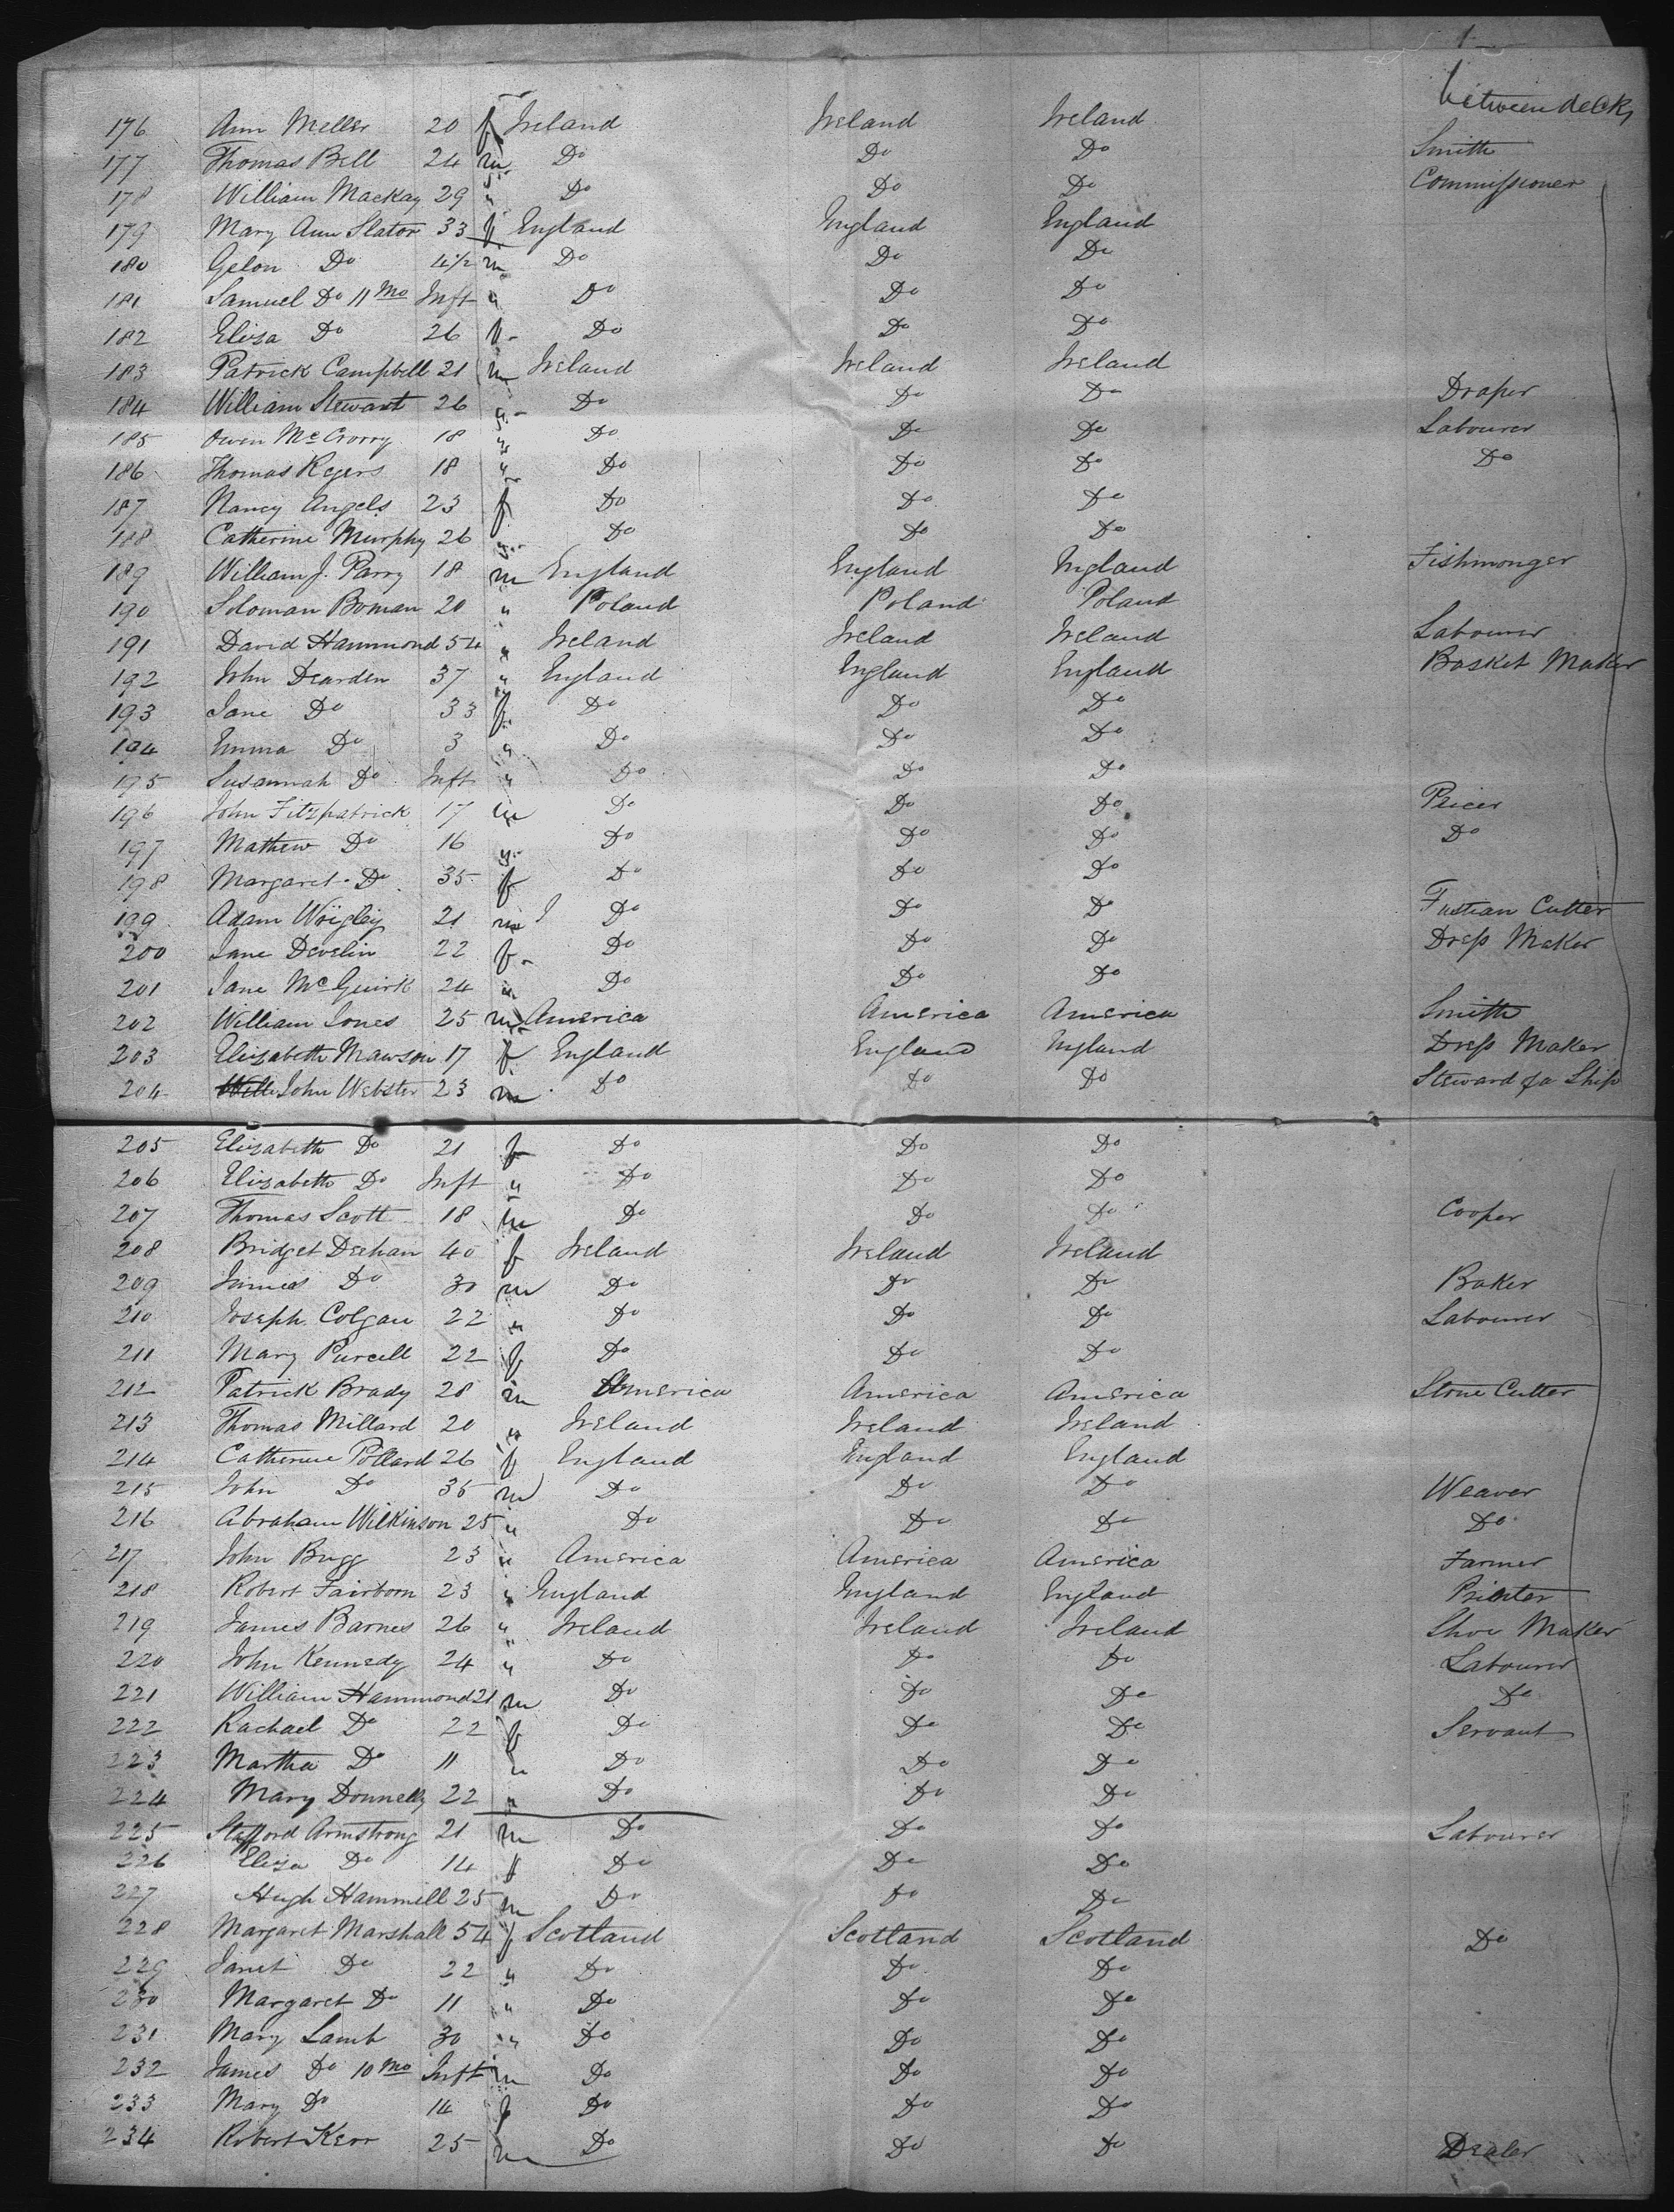 between decks
176 Ann Meller 20 f Ireland Ireland Ireland
177 Thomas Bell 24 m Do Do Do Smith
178 William Mackay 29 " Do Do Do Commissioner
179 Mary Ann Slator 33 f England England England
180 Gelon Do 4½ m Do Do Do
181 Samuel Do 11 Mo Inft " Do Do Do
182 Eliza Do 26 f Do Do Do
183 Patrick Campbell 21 m Ireland Ireland Ireland
184 William Stewart 26 " Do Do Do Draper
185 Owen McCrorry 18 " Do Do Do Labourer
186 Thomas Rogers 18 " Do Do Do Do
187 Nancy Angels 23 f Do Do Do
188 Catherine Murphy 26 " Do Do Do
189 William J. Parry 18 m England England England Fishmonger
190 Soloman Boman 20 " Poland Poland Poland
191 David Hammond 54 " Ireland Ireland Ireland Labourer
192 John Dearden 37 " England England England Basket Maker
193 Jane Do 33 f Do Do Do
194 Emma Do 3 " Do Do Do
195 Susannah Do Inft " Do Do Do
196 John Fitzpatrick 17 m Do Do Do Peicer
197 Mathew Do 16 " Do Do Do Do
198 Margaret Do 35 f Do Do Do
199 Adam 21 m Do Do Do Fustian Cutter
200 Jane Develin 22 f Do Do Do Dress Maker
201 Jane McGuirk 24 " Do Do Do
202 William Jones 25 m America America America Smith
203 Elizabeth Mawson 17 f England England England Dress Maker
204 John Webster 23 m Do Do Do Steward of a Ship
205 Elizabeth Do 21 f Do Do Do
206 Elizabeth Do Inft " Do Do Do
207 Thomas Scott 18 m Do Do Do Cooper
208 Bridget Deehan 40 f Ireland Ireland Ireland
209 James Do 30 m Do Do Do Baker
210 Joseph Colgan 22 " Do Do Do Labourer
211 Mary Purcell 22 f Do Do Do
212 Patrick Brady 28 m America America America Stone Cutter
213 Thomas Millard 20 " Ireland Ireland Ireland
214 Catherine Pollard 26 f England England England
215 John Do 35 m Do Do Do Weaver
216 Abraham Wilkinson 25 " Do Do Do Do
217 John Bugg 23 " America America America Farmer
218 Robert Fairborn 23 " England England England Printer
219 James Barnes 26 " Ireland Ireland Ireland Shoe Maker
220 John Kennedy 24 " Do Do Do Labourer
221 William Hammond 21 m Do Do Do Do
222 Rachael Do 22 f Do Do Do Servant
223 Martha Do 11 " Do Do Do
224 Mary Donnelly 22 " Do Do Do
225 Stafford Armstrong 21 m Do Do Do Labourer
226 Eliza Do 14 f Do Do Do
227 Hugh Hammill 25 m Do Do Do
228 Margaret Marshall 54 f Scotland Scotland Scotland Do
229 Janet Do 22 " Do Do Do
230 Margaret Do 11 " Do Do Do
231 Mary Lamb 30 " Do Do Do
232 James Do 10 Mo Inft m Do Do Do
233 Mary Do 14 f Do Do Do
234 Robert Kerr 25 m Do Do Do Dealer